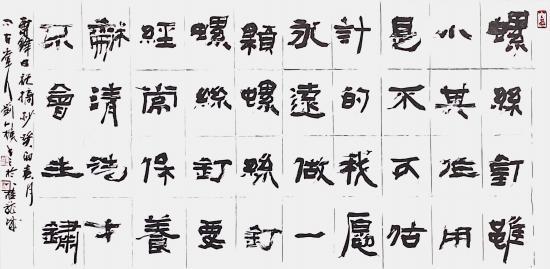 螺絲釘雖
小其作用
是不可估
計的我愿
永遠做一
顆螺絲釘
螺絲釘要
經常保養
龢清洗才
不會生鏽
雷鋒日記摘抄癸卯夏月